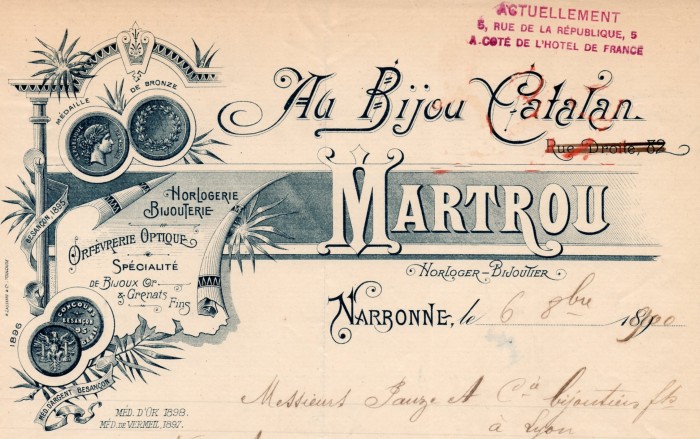 ACTUELLEMENT
5, RUE DE LA RÉPUBLIQUE, 5
A COTÉ DE L'HOTEL DE FRANCE
Au Bijou Catalan.
Rue Droite, 52
MARTROU
HORLOGER-BIJOUTIER
NARBONNE, le 6 8bre 1900
MÉDAILLE DE BRONZE
BESANÇON, 1895
HORLOGERIE
BIJOUTERIE
ORFÈVRERIE OPTIQUE
SPÉCIALITÉ
DE BIJOUX OR
& GRENATS FINS
1896
CONCOURS
BESANÇON
MÉD. D'ARGENT BESANÇON
MÉD. D'OR 1898.
MÉD. DE VERMEIL, 1897.
Messieurs Pauze A Cie bijoutiers fts
à Lyon